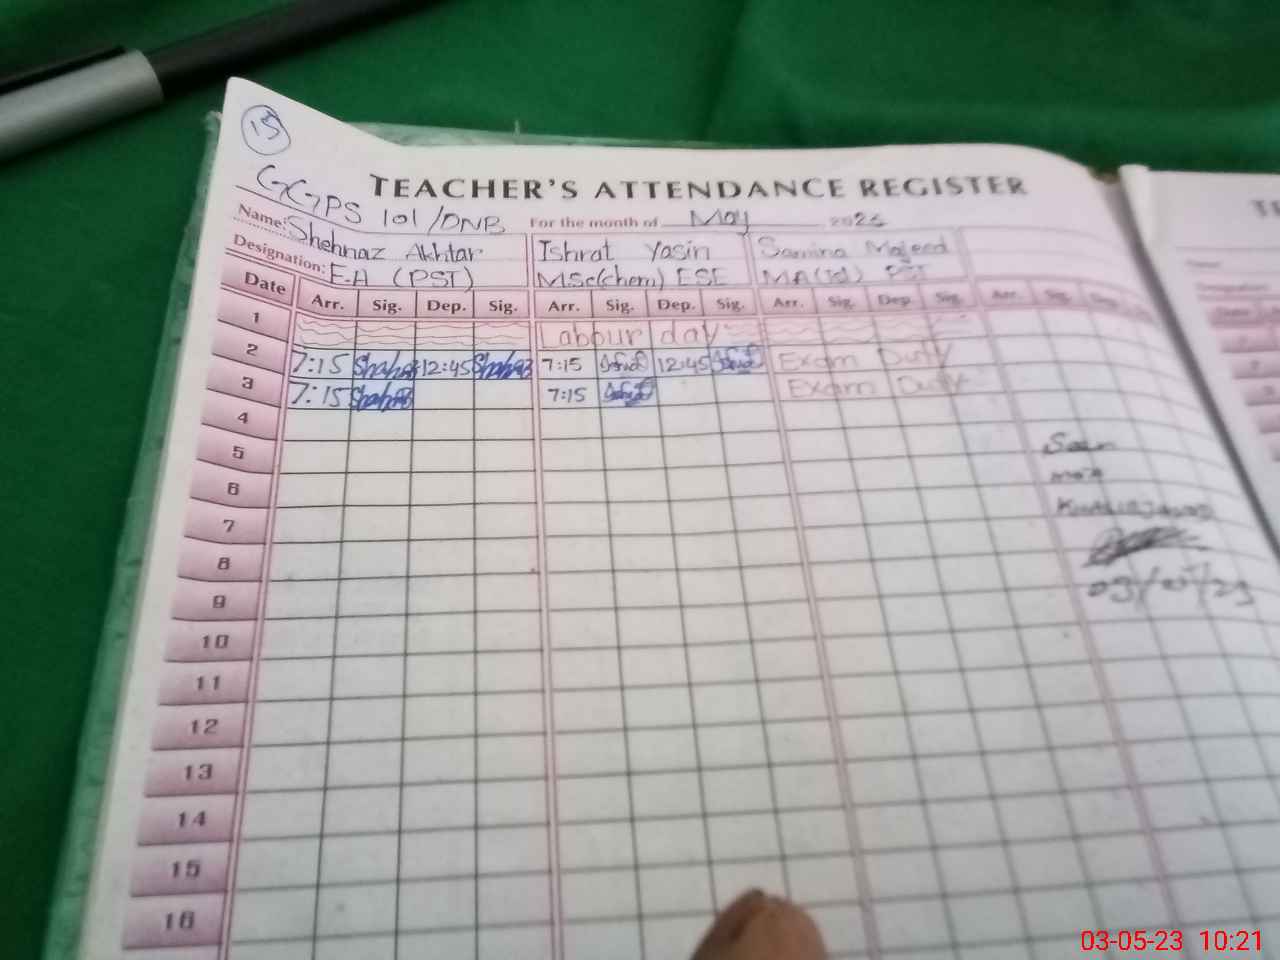 15
GGPS 101/DNB
TEACHER'S ATTENDANCE REGISTER
Name: Shehnaz Akhtar
For the month of May 2023
Ishrat Yasin
Samina Majeed
Designation: E-A (PST)
MSc(chem) ESE
MA(Isl) PST
Date Arr. Sig. Dep. Sig. Arr. Sig. Dep. Sig. Arr. Sig. Dep. Sig. Arr. Sig.
1 Labour day
2 7:15 12:45 7:15 12:45 Exam Duty
3 7:15 7:15 Exam Duty
4
5 Seen
6
7
8
9 03/05/23
10
11
12
13
14
15
16
03-05-23 10:21